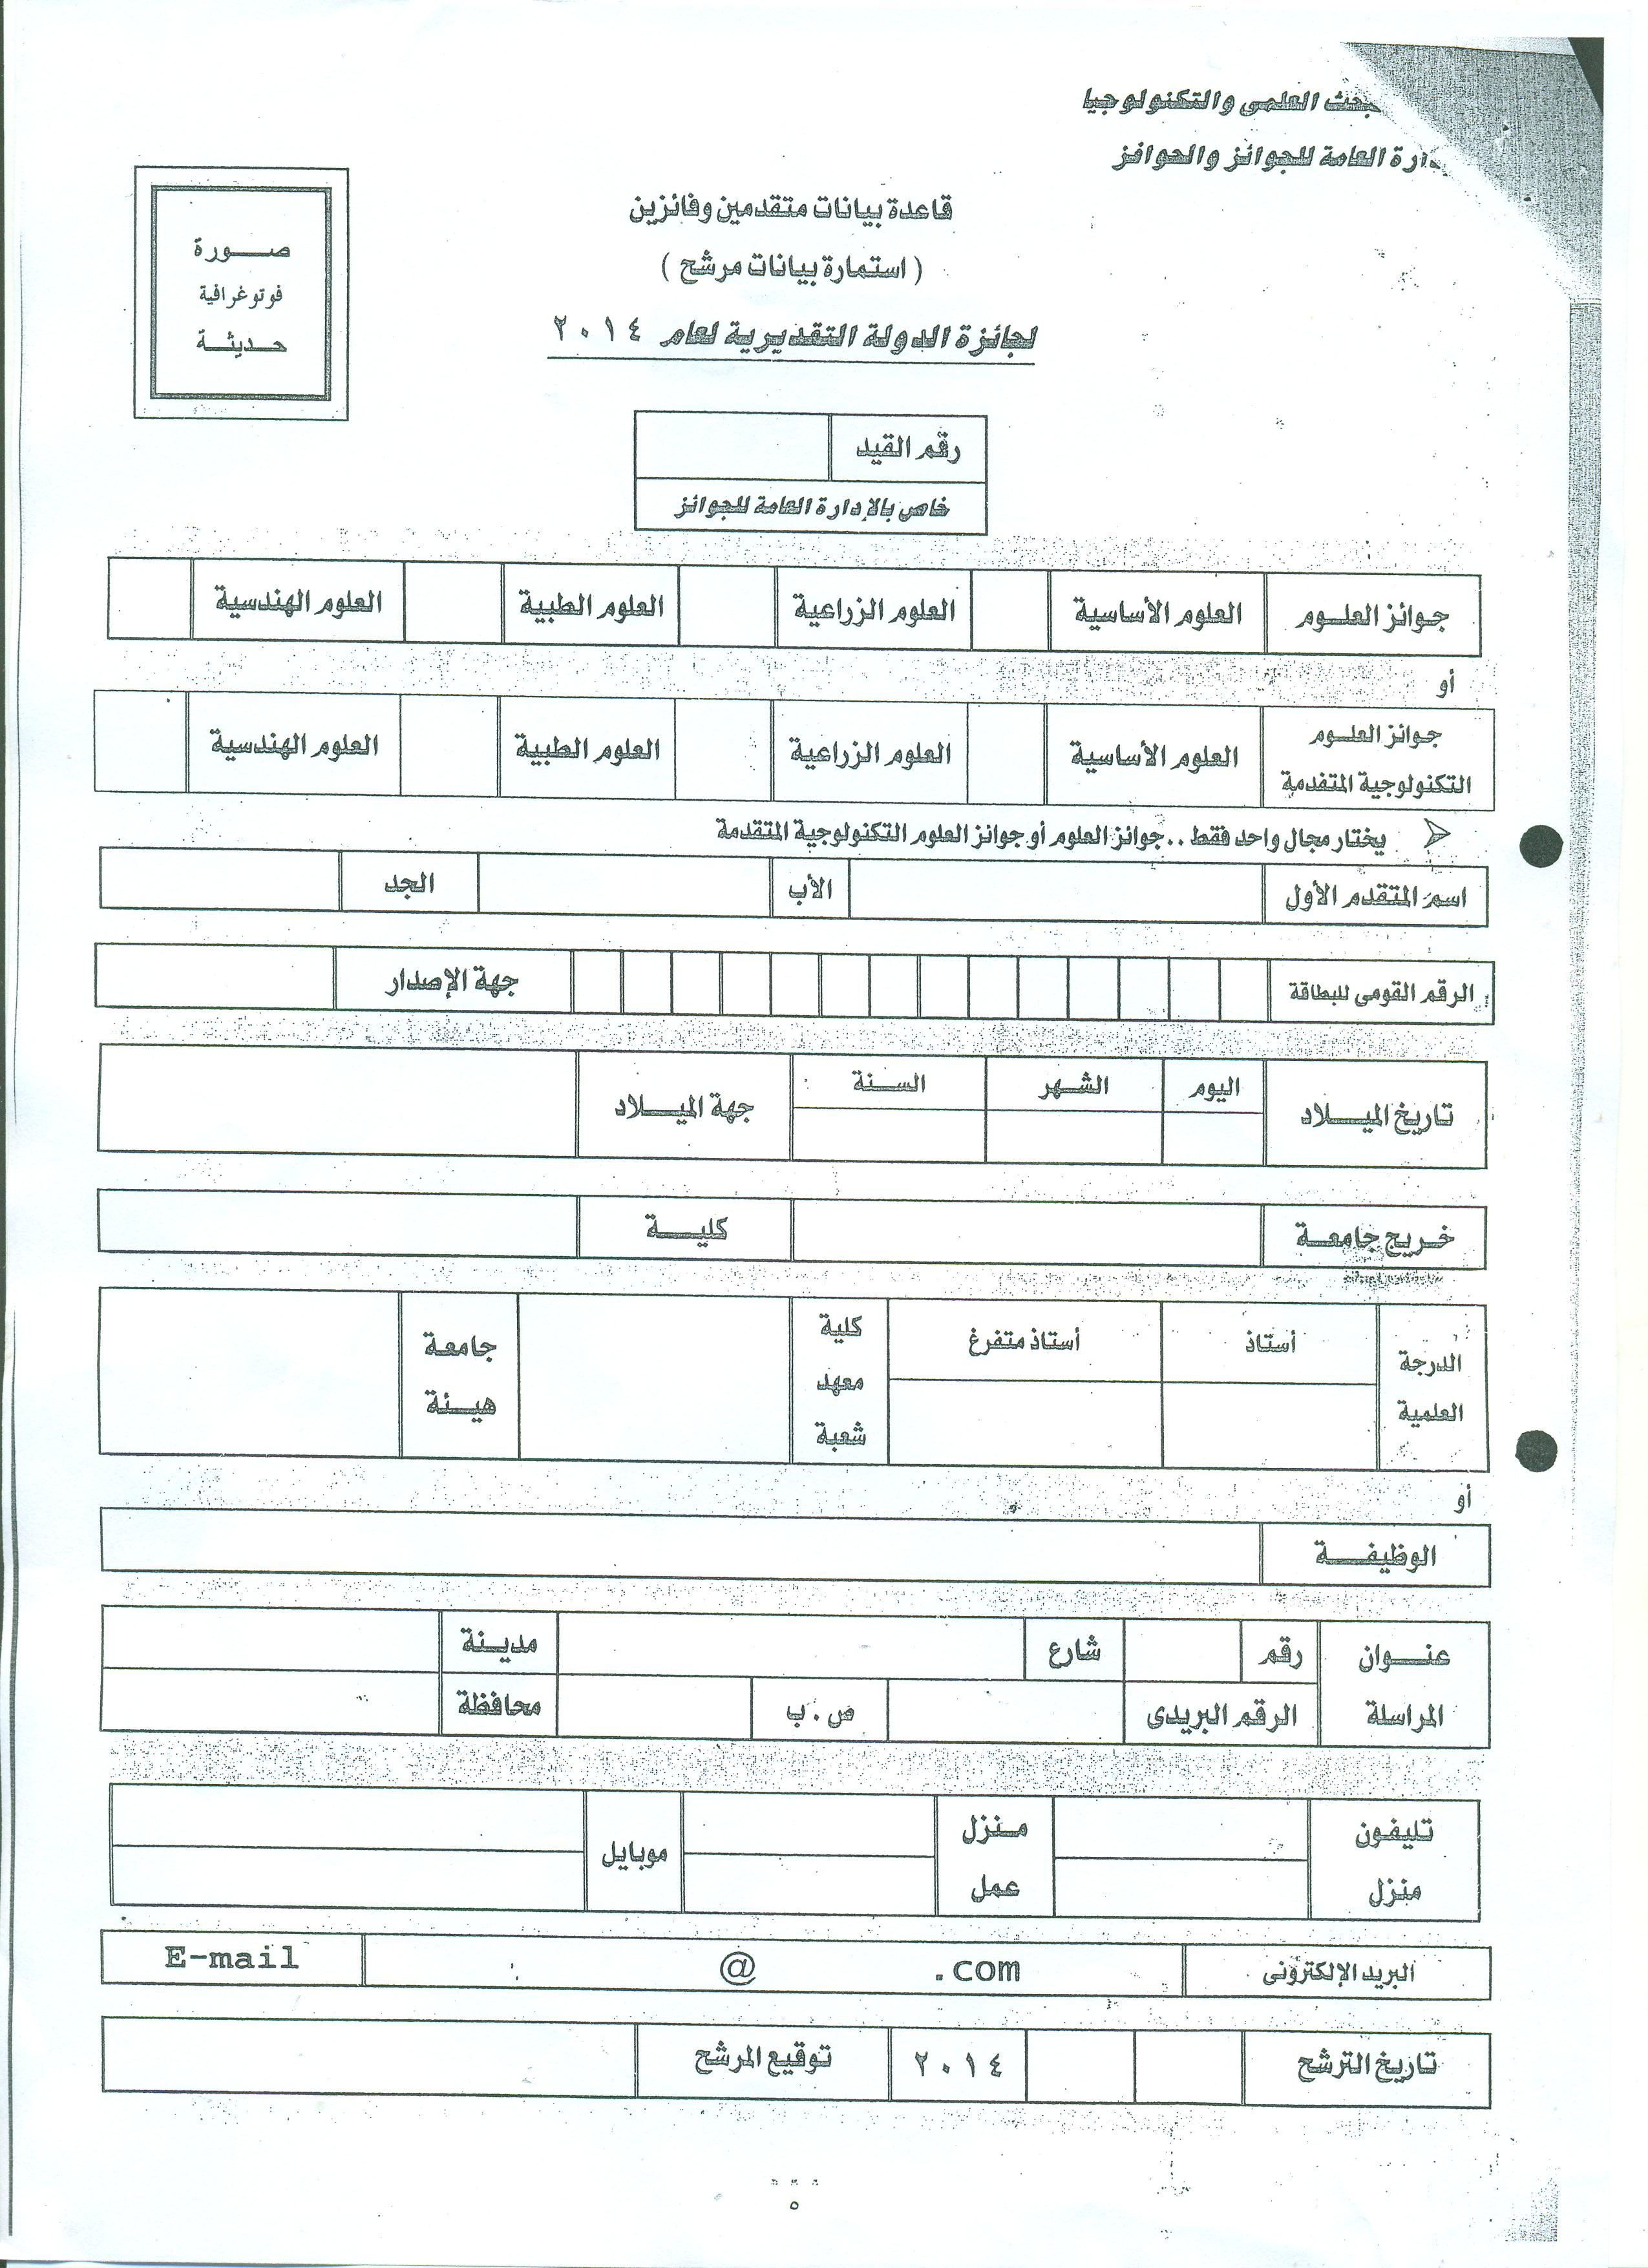 العلمى والتكنولوجيا
العامة للجوائز والحوافز
قاعدة بيانات متقدمين وفائزين
( استمارة بيانات مرشح )
لجائزة الدولة التقديرية لعام ٢٠١٤
صـــورة
فوتوغرافية
حـديثـة
رقم القيد
خاص بالإدارة العامة للجوائز
جـوائز العلـوم العلوم الأساسية العلوم الزراعية العلوم الطبية العلوم الهندسية
أو
جـوائز العلـوم التكنولوجية المتقدمة العلوم الأساسية العلوم الزراعية العلوم الطبية العلوم الهندسية
يختار مجال واحد فقط .. جوائز العلوم أو جوائز العلوم التكنولوجية المتقدمة
اسم المتقدم الأول الأب الجد
الرقم القومى للبطاقة جهة الإصدار
تاريخ الميـــلاد اليوم الشـهر السـنة جهة الميـــلاد
خـريج جامعـة كليــة
الدرجة العلمية أستاذ أستاذ متفرغ كلية معهد شعبة جامعة هيـئة
أو
الوظيفــة
عنـــوان رقم شارع مديـنة
المراسلة الرقم البريدى ص . ب محافظة
تليفون منـزل موبايل
منزل عمل
البريد الإلكترونى @ .com E-mail
تاريخ الترشح ٢٠١٤ توقيع المرشح
٥